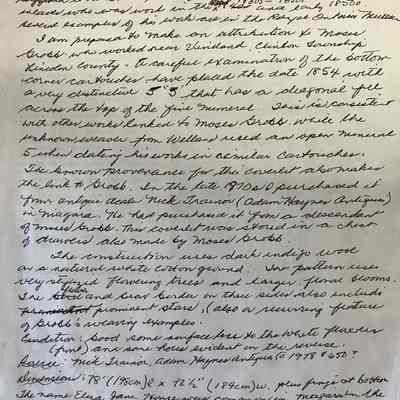 several examples of his work are in the Royal Ontario Museum
I am prepared to make an attribution to Moses
Grobb who worked near Vineland, Clinton Township
Lincoln County. A careful examination of the bottom
corner cartouches have placed the date 1854 with
a very distinctive 5 "5" that has a diagonal fill
across the top of the five numeral. This is consistent
with other works linked to Moses Grobb. While the
unknown weaver from Welland used an open numeral
5 when dating his works in similar cartouches.
The known provenance for this coverlet also makes
the link to Grobb. In the late 1970s I purchased it
from antique dealer Nick Trainor (Adam Haynes Antiques)
in Niagara. He had purchased it from a descendant
of Moses Grobb. This coverlet was stored in a chest
of drawers also made by Moses Grobb.
The construction uses dark indigo wool
on a natural white cotton ground. The pattern uses
very stylized flowering trees and larger floral blooms.
The and border on three sides also include
prominent stars, (also a recurring feature
of Grobb's weaving examples.
Condition: Good some surface loss to the white
(front) and some holes evident on the reverse.
Source: Nick Trainor, Adam Haynes Antiques @ 1978 $650?
Dimensions: 78" (198cm) l x 72 ½" (184cm) w. plus fringe at bottom
The name Eliza Jane House was